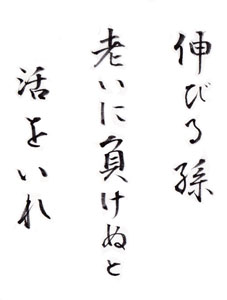 伸びる孫
老いに負けぬと
活をいれ